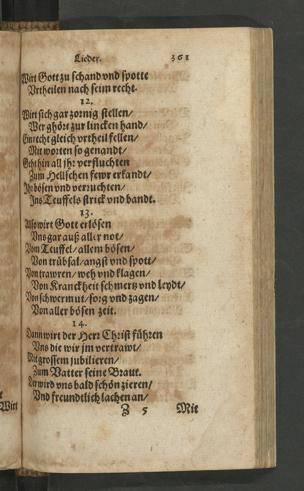 Lieder. 361
Wirt Gott zu schand vnd spotte
Vrtheilen nach seim recht.
12.
Wirt sich gar zornig stellen/
Wer ghört zur lincken hand/
Ein recht gleich vrtheil fellen/
Mit worten so genandt/
Geht hin all jhr verfluchten
Zum Hellschen fewr erkandt/
Jhr bösen vnd verruchten/
Ins Teuffels strick vnd bandt.
13.
Also wirt Gott erlösen
Vns gar auß aller not/
Vom Teuffel/ allem bösen/
Von trübsal/ angst vnd spott/
Von trawren/ weh vnd klagen/
Von Kranckheit schmertz vnd leydt/
Von schwermut/ sorg vnd zagen/
Von aller bösen zeit.
14.
Dann wirt der Herr Christ führen
Vns die wir jm vertrawt/
Mit grossem jubilieren/
Zum Vatter seine Braut.
Der wird vns bald schön zieren/
Vnd freundtlich lachen an/
Z 5 Mit
Wirt